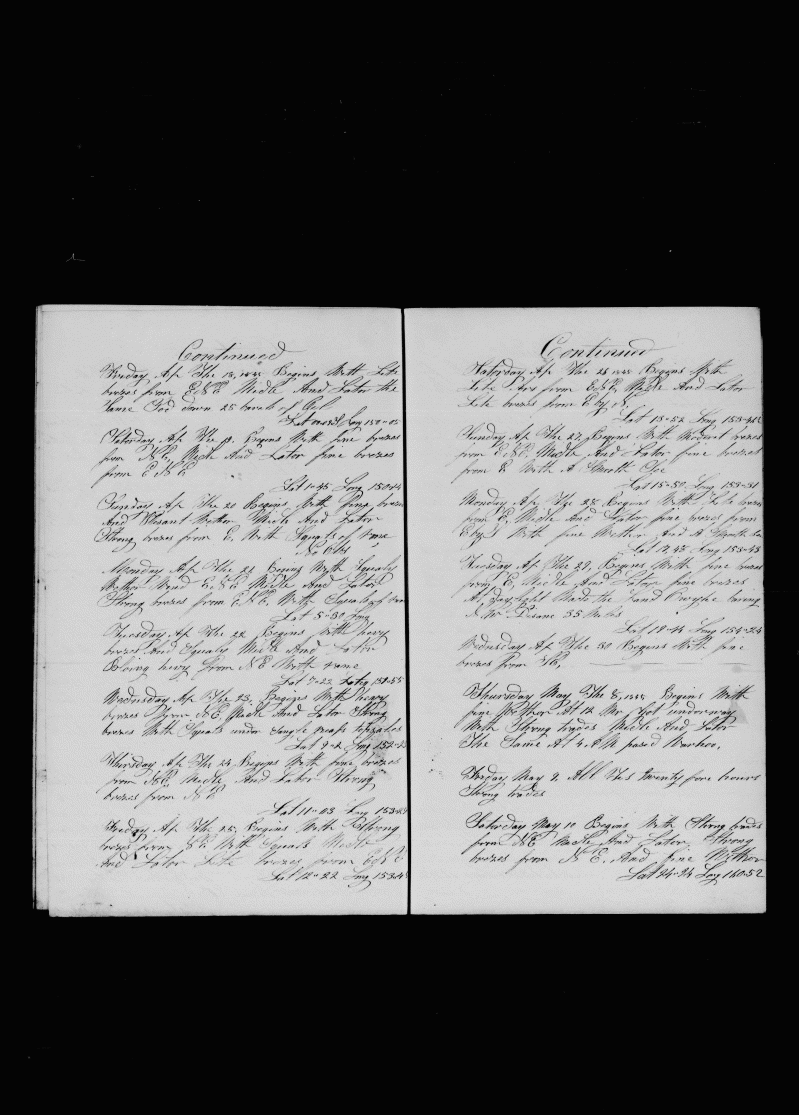 Continued
Friday Ap The 18, 1884 Begins With Lite
brezes from E.N.E Midle And Lator the
Same Stod down 25 barels of Oil
Long 150-05
Saturday Ap The 19. Begins With fine brezes
from N.E, Midle And Lator fine brezes
from E N E
Lat 1-45 Long 150-14
Sunday Ap The 20 Begins With fine brezes
And Plesant Wether Midle And Lator
Strong brezes from E. With Squals of rane
No Obs
Monday Ap The 21 Begins With Squaly
Wether Wind E.N.E Midle And Lator
Strong brezes from E.N.E. With
Lat 5-30 Long
Tuesday Ap The 22 Begins With hevy
brezes And Squaly Midle And Lator
Bloing hevy from N E With rane
Lat 7-22 Long 151-55
Wednesday Ap The 23, Begins With hevy
brezes from N.E. Midle And Lator Strong
brezes With Squals under single reafe topsales
Lat 9-2 Long 152-
Thursday Ap The 24 Begins With fine brezes
from N.E. Midle And Lator Strong
brezes from N E
Lat 11-03 Long 153-
Friday Ap The 25, Begins With Strong
brezes from N.E With Squals Midle
And Lator Lite brezes from E N E
Lat 12-22 Long 153-
Continued
Saturday Ap The 26 1884 Begins With
Lite Airs from Midle And Lator
Lite brezes from E by N.
Lat 13-52 Long 153-
Sunday Ap The 27, Begins With brezes
from E.N.E. Midle And Lator fine brezes
from E With A Smooth Cee
Lat 15-50 Long 153-51
Monday Ap The 28 Begins With Lite brezes
from E, Midle And Lator fine brezes from
E by N With fine Wether And A Smooth
Lat 17,43 Long 153-43
Tuesday Ap The 29, Begins With fine brezes
from E, Midle And Lator fine brezes
At daylight Made the Land baring
N.W. Distance 35 Miles
Lat 18-44 Long 154-24
Wednesday Ap The 30 Begins With fine
brezes from
Thursday May The 8, 1884 Begins With
fine Wether At 12 Mr. Got underway
With Strong trades Midle And Lator
The Same At 4. P.M pased
Friday May 9. All This twenty fore hours
Strong trades
Saturday May 10 Begins With Strong trades
from N.E Midle And Lator Strong
brezes from N. E. And fine Wether
Lat 24-24 Long 160-52